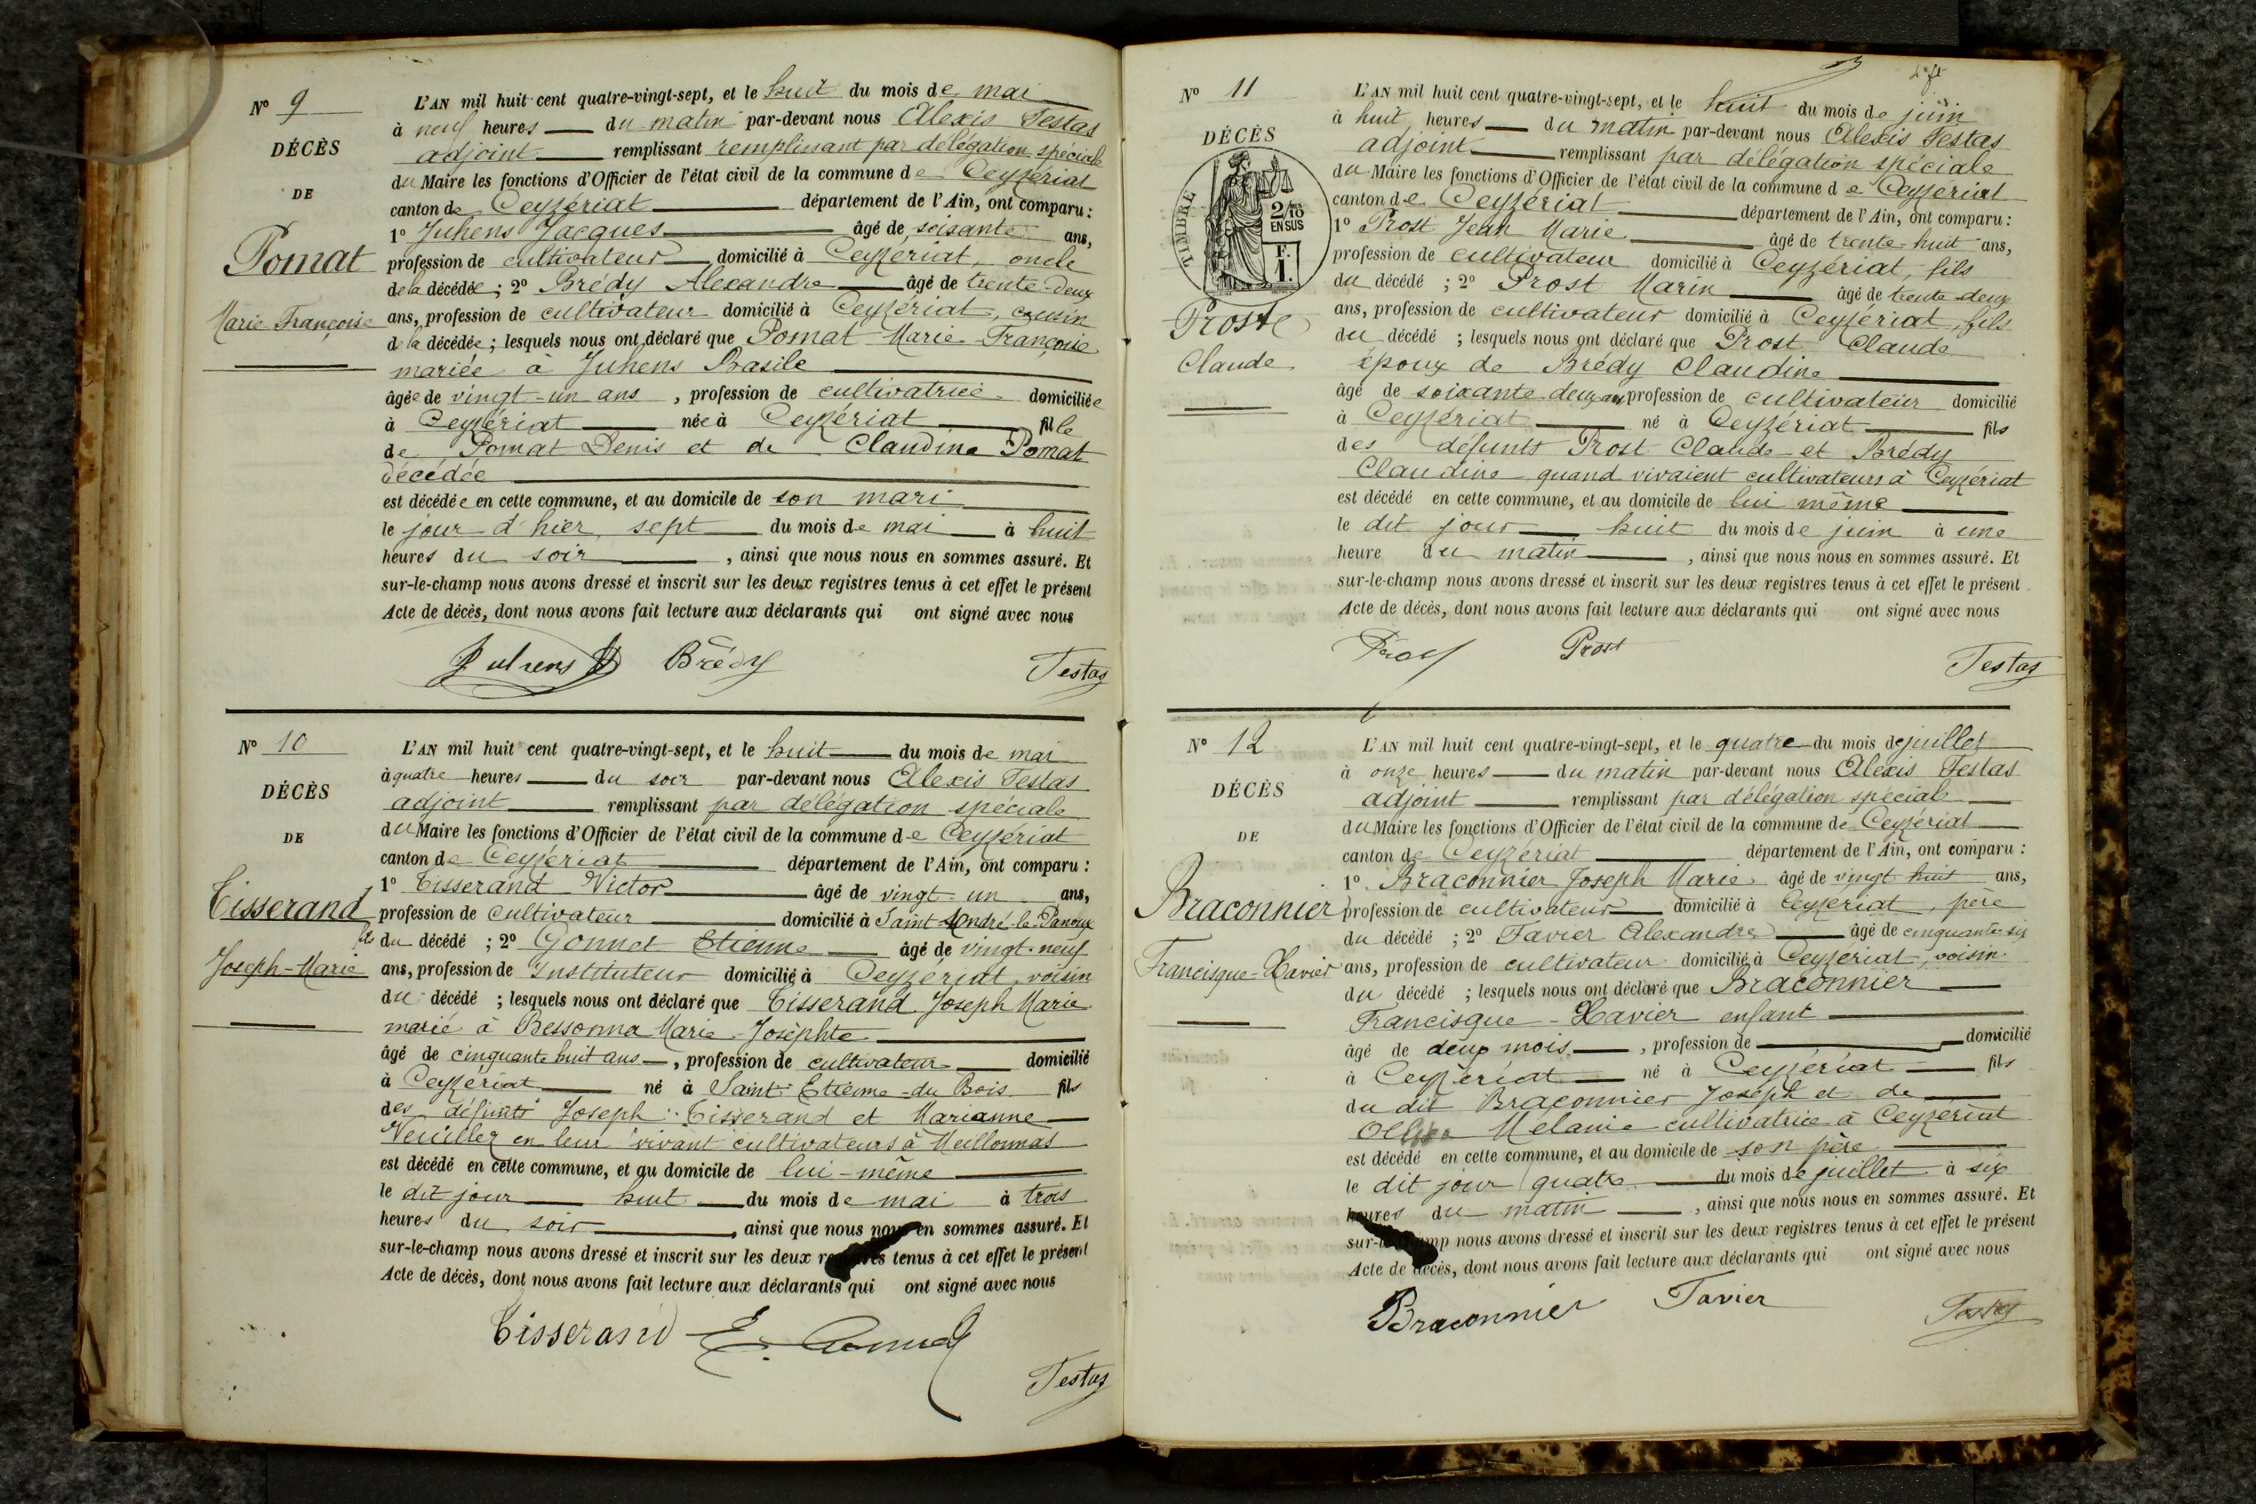 N° 9
DÉCÈS
DE
Pomat
Marie Françoise
L'AN mil huit cent quatre-vingt-sept, et le huit du mois de mai
à neuf heures du matin par-devant nous Alexis Testas
adjoint remplissant remplissant par délégation spéciale
du Maire les fonctions d'Officier de l'état civil de la commune de Ceyzériat
canton de Ceyzériat département de l'Ain, ont comparu :
1° Juhens Jacques âgé de soisante ans,
profession de cultivateur domicilié à Ceyzériat, oncle
de la décédée ; 2° Brédy Alexandre âgé de trente-deux
ans, profession de cultivateur domicilié à Ceyzériat, cousin
de la décédée ; lesquels nous ont déclaré que Pomat Marie-Françoise
mariée à Juhens Basile
âgée de vingt-un ans , profession de cultivatrice domiciliée
à Ceyzériat née à Ceyzériat fille
de Pomat Denis et de Claudine Pomat
décédée
est décédée en cette commune, et au domicile de son mari
le jour d'hier, sept du mois de mai à huit
heures du soir , ainsi que nous nous en sommes assuré. Et
sur-le-champ nous avons dressé et inscrit sur les deux registres tenus à cet effet le présent
Acte de décès, dont nous avons fait lecture aux déclarants qui ont signé avec nous
Juhens J Brédy Testas
N° 10
DÉCÈS
DE
Tisserand
Joseph-Marie
L'AN mil huit cent quatre-vingt-sept, et le huit du mois de mai
à quatre heures du soir par-devant nous Alexis Testas
adjoint remplissant par délégation spéciale
du Maire les fonctions d'Officier de l'état civil de la commune de Ceyzériat
canton de Ceyzériat département de l'Ain, ont comparu :
1° Tisserand Victor âgé de vingt-un ans,
profession de cultivateur domicilié à Saint-André-le-Panoux
fils du décédé ; 2° Gonnet Etienne âgé de vingt-neuf
ans, profession de Instituteur domicilié à Ceyzériat, voisin
du décédé ; lesquels nous ont déclaré que Tisserand Joseph Marie
marié à Bessonna Marie Josephte
âgé de cinquante huit ans , profession de cultivateur domicilié
à Ceyzériat né à Saint-Etienne-du Bois fils
des défunts Joseph Tisserand et Marianne
Veuillez en leur vivant cultivateurs à Meillonnas
est décédé en cette commune, et au domicile de lui-même
le dit jour huit du mois de mai à trois
heures du soir , ainsi que nous nous en sommes assuré. Et
sur-le-champ nous avons dressé et inscrit sur les deux registres tenus à cet effet le présent
Acte de décès, dont nous avons fait lecture aux déclarants qui ont signé avec nous
Tisserand E. Gonnet
Testas
N° 11
DÉCÈS
TIMBRE
2/10
EN SUS
F.
1.
Prost
Claude
L'AN mil huit cent quatre-vingt-sept, et le huit du mois de juin
à huit heures du matin par-devant nous Alexis Testas
adjoint remplissant par délégation spéciale
du Maire les fonctions d'Officier de l'état civil de la commune de Ceyzeriat
canton de Ceyzériat département de l'Ain, ont comparu :
1° Prost Jean Marie âgé de trente-huit ans,
profession de cultivateur domicilié à Ceyzériat, fils
du décédé ; 2° Prost Marin âgé de trente-deux
ans, profession de cultivateur domicilié à Ceyzériat, fils
du décédé ; lesquels nous ont déclaré que Prost Claude
époux de Brédy Claudine
âgé de soixante-deux ans profession de cultivateur domicilié
à Ceyzériat né à Ceyzériat fils
des défunts Prost Claude et Brédy
Claudine quand vivaient cultivateurs à Ceyzériat
est décédé en cette commune, et au domicile de lui même
le dit jour huit du mois de juin à une
heure du matin , ainsi que nous nous en sommes assuré. Et
sur-le-champ nous avons dressé et inscrit sur les deux registres tenus à cet effet le présent
Acte de décès, dont nous avons fait lecture aux déclarants qui ont signé avec nous
Prost Prost Testas
N° 12
DÉCÈS
DE
Braconnier
Francisque-Xavier
L'AN mil huit cent quatre-vingt-sept, et le quatre du mois de juillet
à onze heures du matin par-devant nous Alexis Testas
adjoint remplissant par délégation spéciale
du Maire les fonctions d'Officier de l'état civil de la commune de Ceyzériat
canton de Ceyzériat département de l'Ain, ont comparu :
1° Braconnier Joseph Marie âgé de vingt huit ans,
profession de cultivateur domicilié à Ceyzériat, père
du décédé ; 2° Favier Alexandre âgé de cinquante-six
ans, profession de cultivateur domicilié à Ceyzériat, voisin
du décédé ; lesquels nous ont déclaré que Braconnier
Francisque-Xavier enfant
âgé de deux mois , profession de domicilié
à Ceyzériat né à Ceyzériat fils
du dit Braconnier Joseph et de
Mélanie cultivatrice à Ceyzériat
est décédé en cette commune, et au domicile de son père
le dit jour quatre du mois de juillet à six
heures du matin , ainsi que nous nous en sommes assuré. Et
sur-le-champ nous avons dressé et inscrit sur les deux registres tenus à cet effet le présent
Acte de décès, dont nous avons fait lecture aux déclarants qui ont signé avec nous
Braconnier Favier Testas